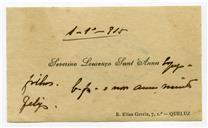 1-1º-915
Severino Lourenço Sant'Anna
filhos. b. f. e nov anno muito
feliz.
R. Elias Garcia, 7, 1.º — QUELUZ